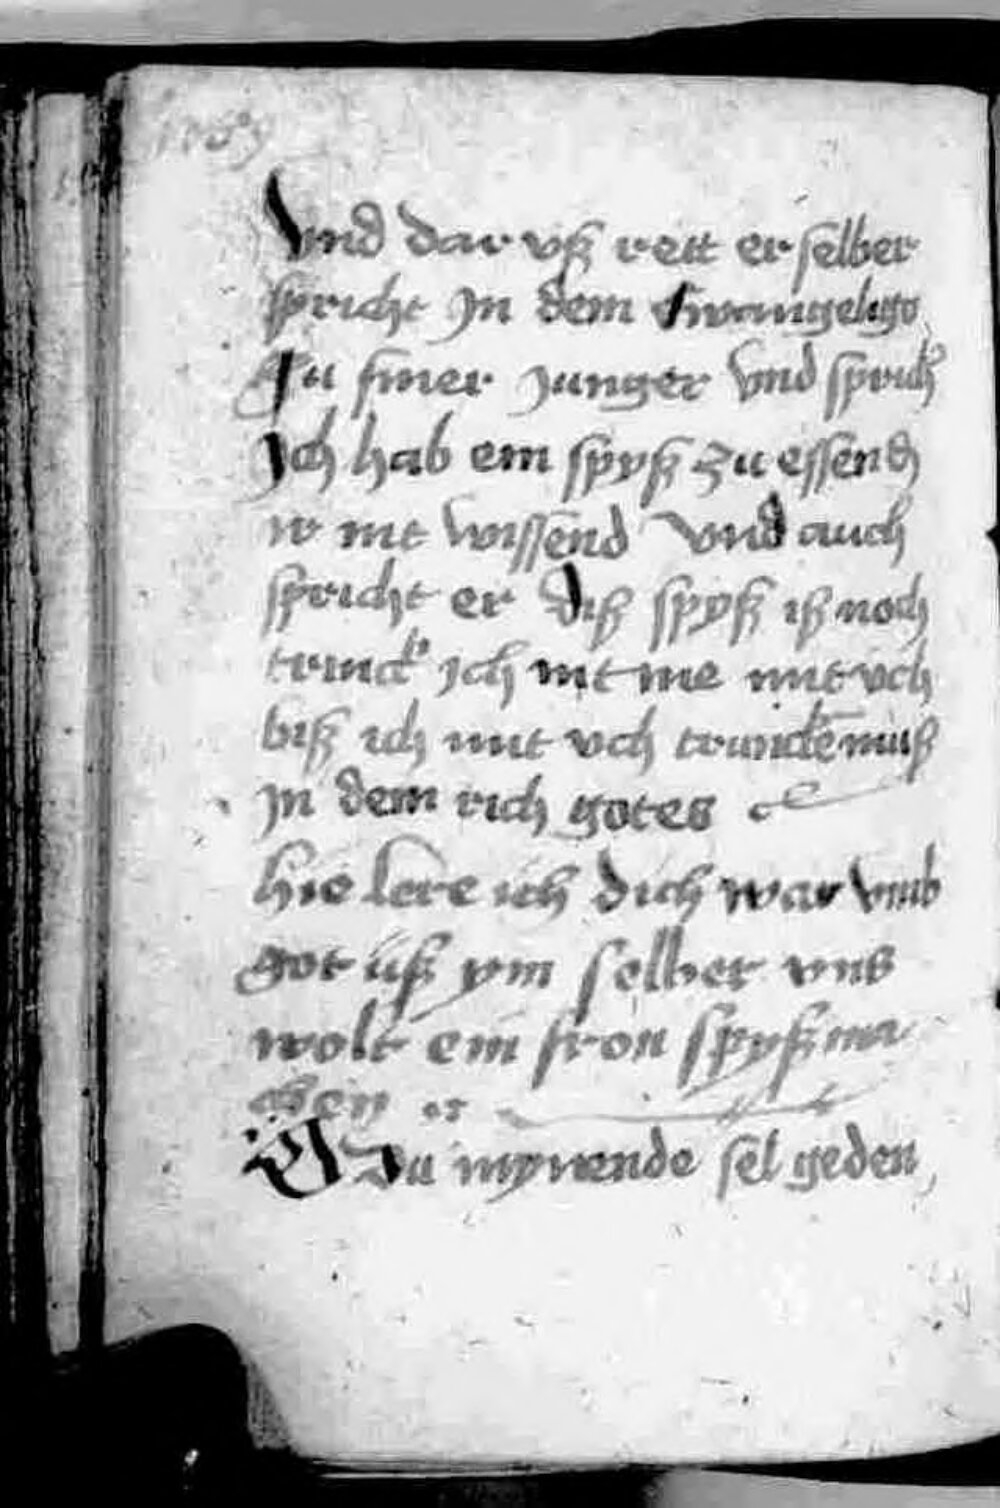 Vnd dar vß rett er selber
spricht Jn dem Ewangelyo
Zu siner Junger Vnd sprich
Jch hab ein spyß zu essend
ir nit wissend Vnd auch
spricht er diß spyß iß noch
trinck ich nit me mit vch
biß ich mit vch trincken muß
Jn dem rich gotes
hie lere ich dich war vmb
got uß ym selber vns
wolt ein fron spyß ma
chen
O Du mynende sel geden